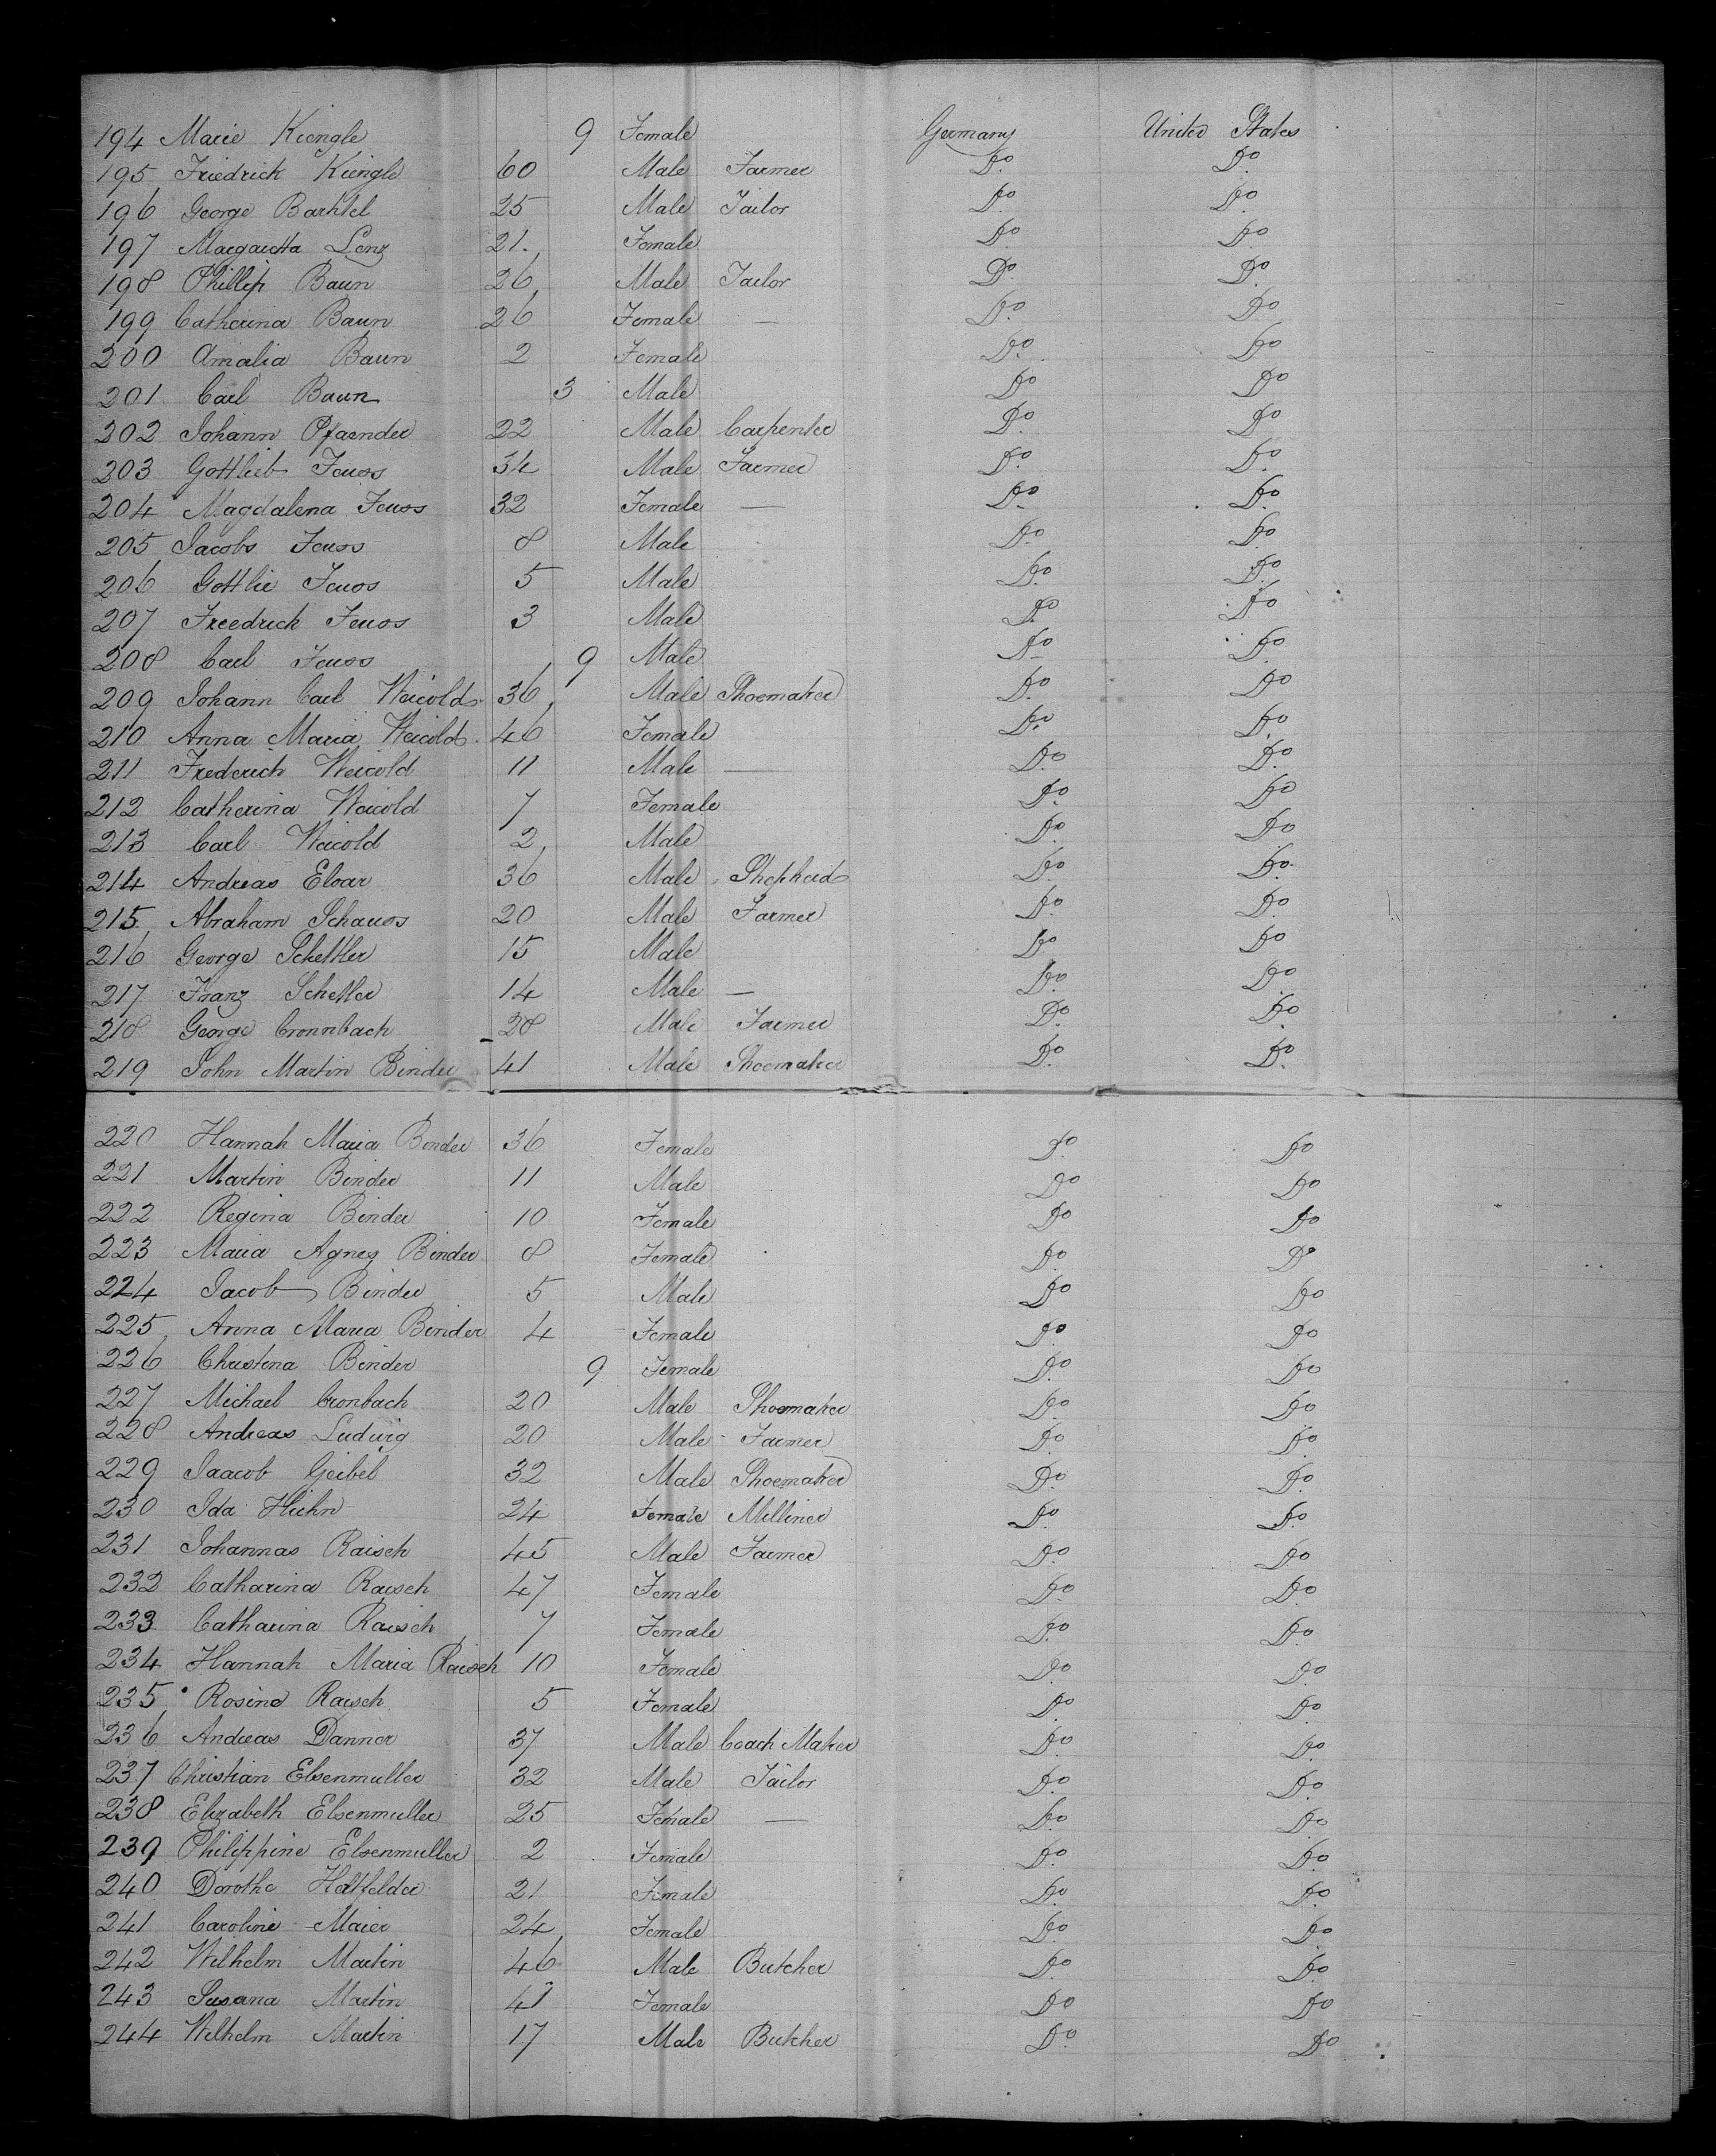 194 Marie Kiengle 9 Female Germany United States
195 Friedrich Kiengle 60 Male Farmer Do Do
196 George Barhtel 25 Male Tailor Do Do
197 Margaretta Lenz 21. Female Do Do
198 Phillip Baun 26 Male Tailor Do Do
199 Catherina Baun 26 Female — Do Do
200 Amalia Baun 2 Female Do Do
201 Carl Baun 3 Male Do Do
202 Johann Pfaender 22 Male Carpenter Do Do
203 Gottlieb Feuss 34 Male Farmer Do Do
204 Magdalena Feuss 32 Female — Do Do
205 Jacobs Feuss 8 Male Do Do
206 Gottlie Feuss 5 Male Do Do
207 Freedrich Feuss 3 Male Do Do
208 Carl Feuss 9 Male Do Do
209 Johann Carl Weicold 36 Male Shoemaker Do Do
210 Anna Maria Weicold 46 Female Do Do
211 Frederich Weicold 11 Male — Do Do
212 Catherina Weicold 7 Female Do Do
213 Carl Weicold 2 Male Do Do
214 Andreas Eloar 36 Male Shepherd Do Do
215 Abraham Schauss 20 Male Farmer Do Do
216 George Schettler 15 Male Do Do
217 Franz Schetler 14 Male — Do Do
218 George Cronnbach 28 Male Farmer Do Do
219 John Martin Binder 41 Male Shoemaker Do Do
220 Hannah Maria Binder 36 Female Do Do
221 Martin Binder 11 Male Do Do
222 Regina Binder 10 Female Do Do
223 Maria Agnes Binder 8 Female Do Do
224 Jacob Binder 5 Male Do Do
225 Anna Maria Binder 4 Female Do Do
226 Christina Binder 9 Female Do Do
227 Michael Cronbach 20 Male Shoemaker Do Do
228 Andreas Ludwig 20 Male Farmer Do Do
229 Jaacob Geibel 32 Male Shoemaker Do Do
230 Ida Huhn 24 Female Milliner Do Do
231 Johannas Raisch 45 Male Farmer Do Do
232 Catharina Raisch 47 Female Do Do
233 Catharina Raisch 7 Female Do Do
234 Hannah Maria Raisch 10 Female Do Do
235 Rosine Raisch 5 Female Do Do
236 Andreas Danner 37 Male Coach Maker Do Do
237 Christian Elsenmuller 32 Male Tailor Do Do
238 Elizabeth Elsenmuller 25 Female — Do Do
239 Philippine Elsenmuller 2 Female Do Do
240 Dorothe Heltfelder 21 Female Do Do
241 Caroline Maier 24 Female Do Do
242 Wilhelm Martin 46 Male Butcher Do Do
243 Susana Martin 41 Female Do Do
244 Wilhelm Martin 17 Male Butcher Do Do